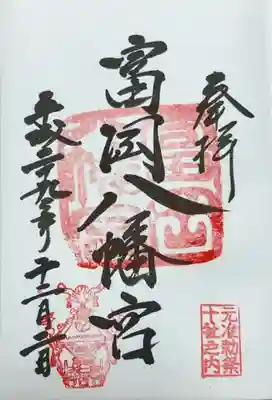 奉拝
元准勅祭
十社之内
富岡八幡宮
平成二十九年十二月二日